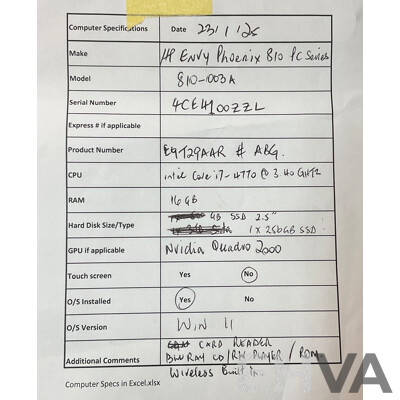 Computer Specifications Date 23/1/25
Make HP ENVY Phoenix 810 PC Series
Model 810-1003A
Serial Number 4CE4100ZZL
Express # if applicable
Product Number E9T29AAR # ABG.
CPU intel Core i7-4770 @ 3.40 GHTZ
RAM 16 GB
GB SSD 2.5"
Hard Disk Size/Type 1 x 256GB SSD
GPU if applicable Nvidia Quadro 2000
Touch screen Yes No
O/S Installed Yes No
O/S Version WIN 11
CARD READER
Additional Comments BLURAY CD/RW PLAYER / ROM
Wireless Built in
Computer Specs in Excel.xlsx
VA